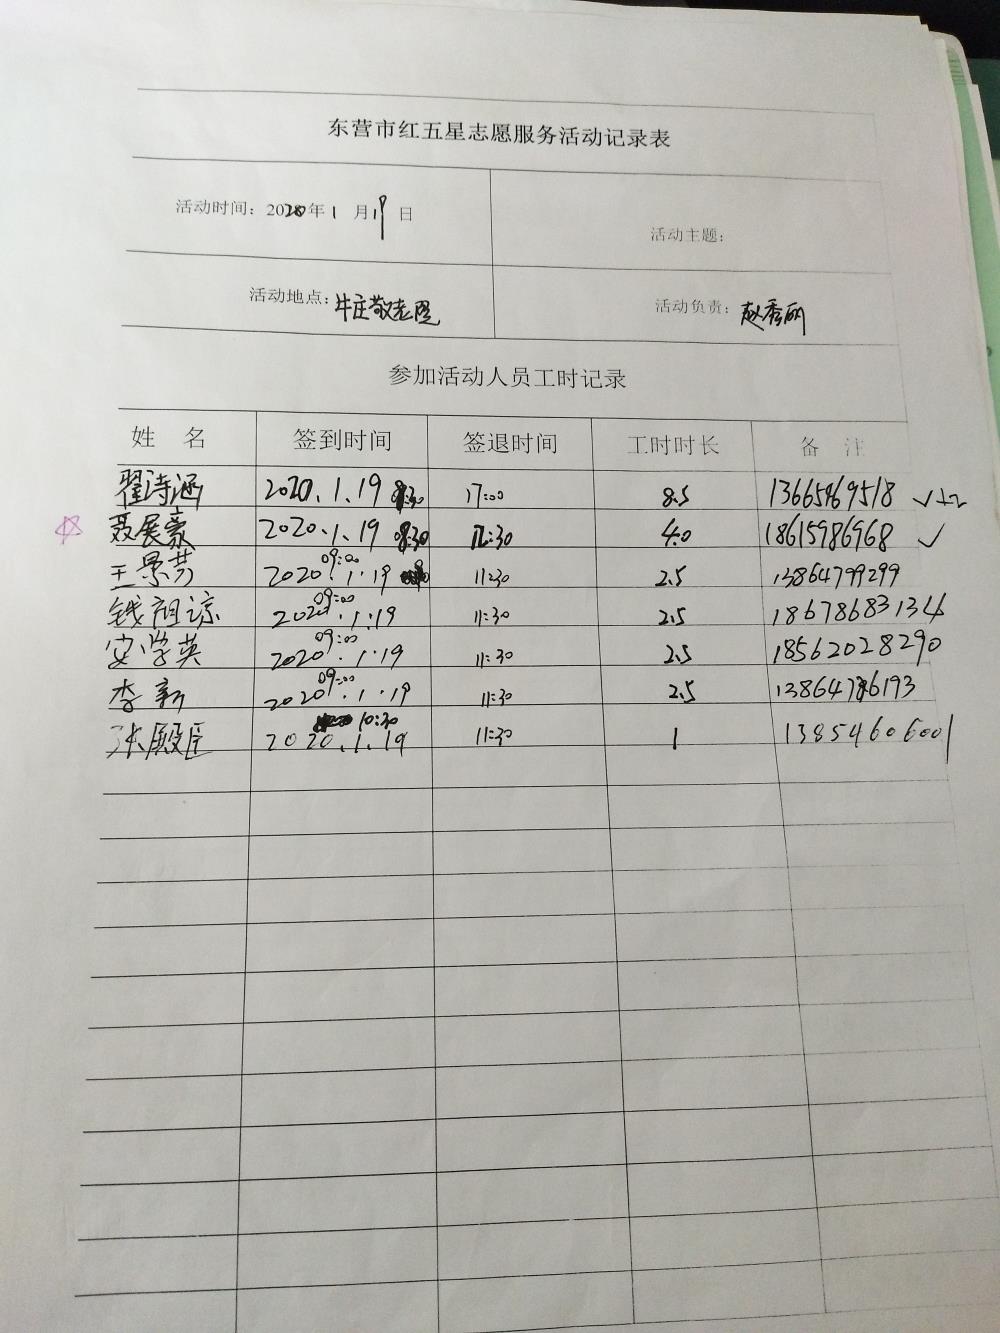 东营市红五星志愿服务活动记录表
活动时间：2020年1月19日 活动主题：
活动地点：牛庄敬老院 活动负责：赵秀丽
参加活动人员工时记录
姓 名 签到时间 签退时间 工时时长 备 注
翟诗涵 2020.1.19 8:30 17:00 8.5 13665469518 ✓
聂展豪 2020.1.19 08:30 12:30 4.0 18615986968 ✓
王景芳 09:00 2020.1.19 11:30 2.5 13864799299
钱祖谅 09:00 2020.1.19 11:30 2.5 18678683134
安学英 09:00 2020.1.19 11:30 2.5 18562028290
李新 09:00 2020.1.19 11:30 2.5
张殿臣 10:30 2020.1.19 11:30 1 13854606001